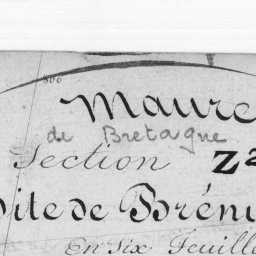 806
Maure
de Bretagne
Section Z2
Dite de Bréni
En Six Feuille